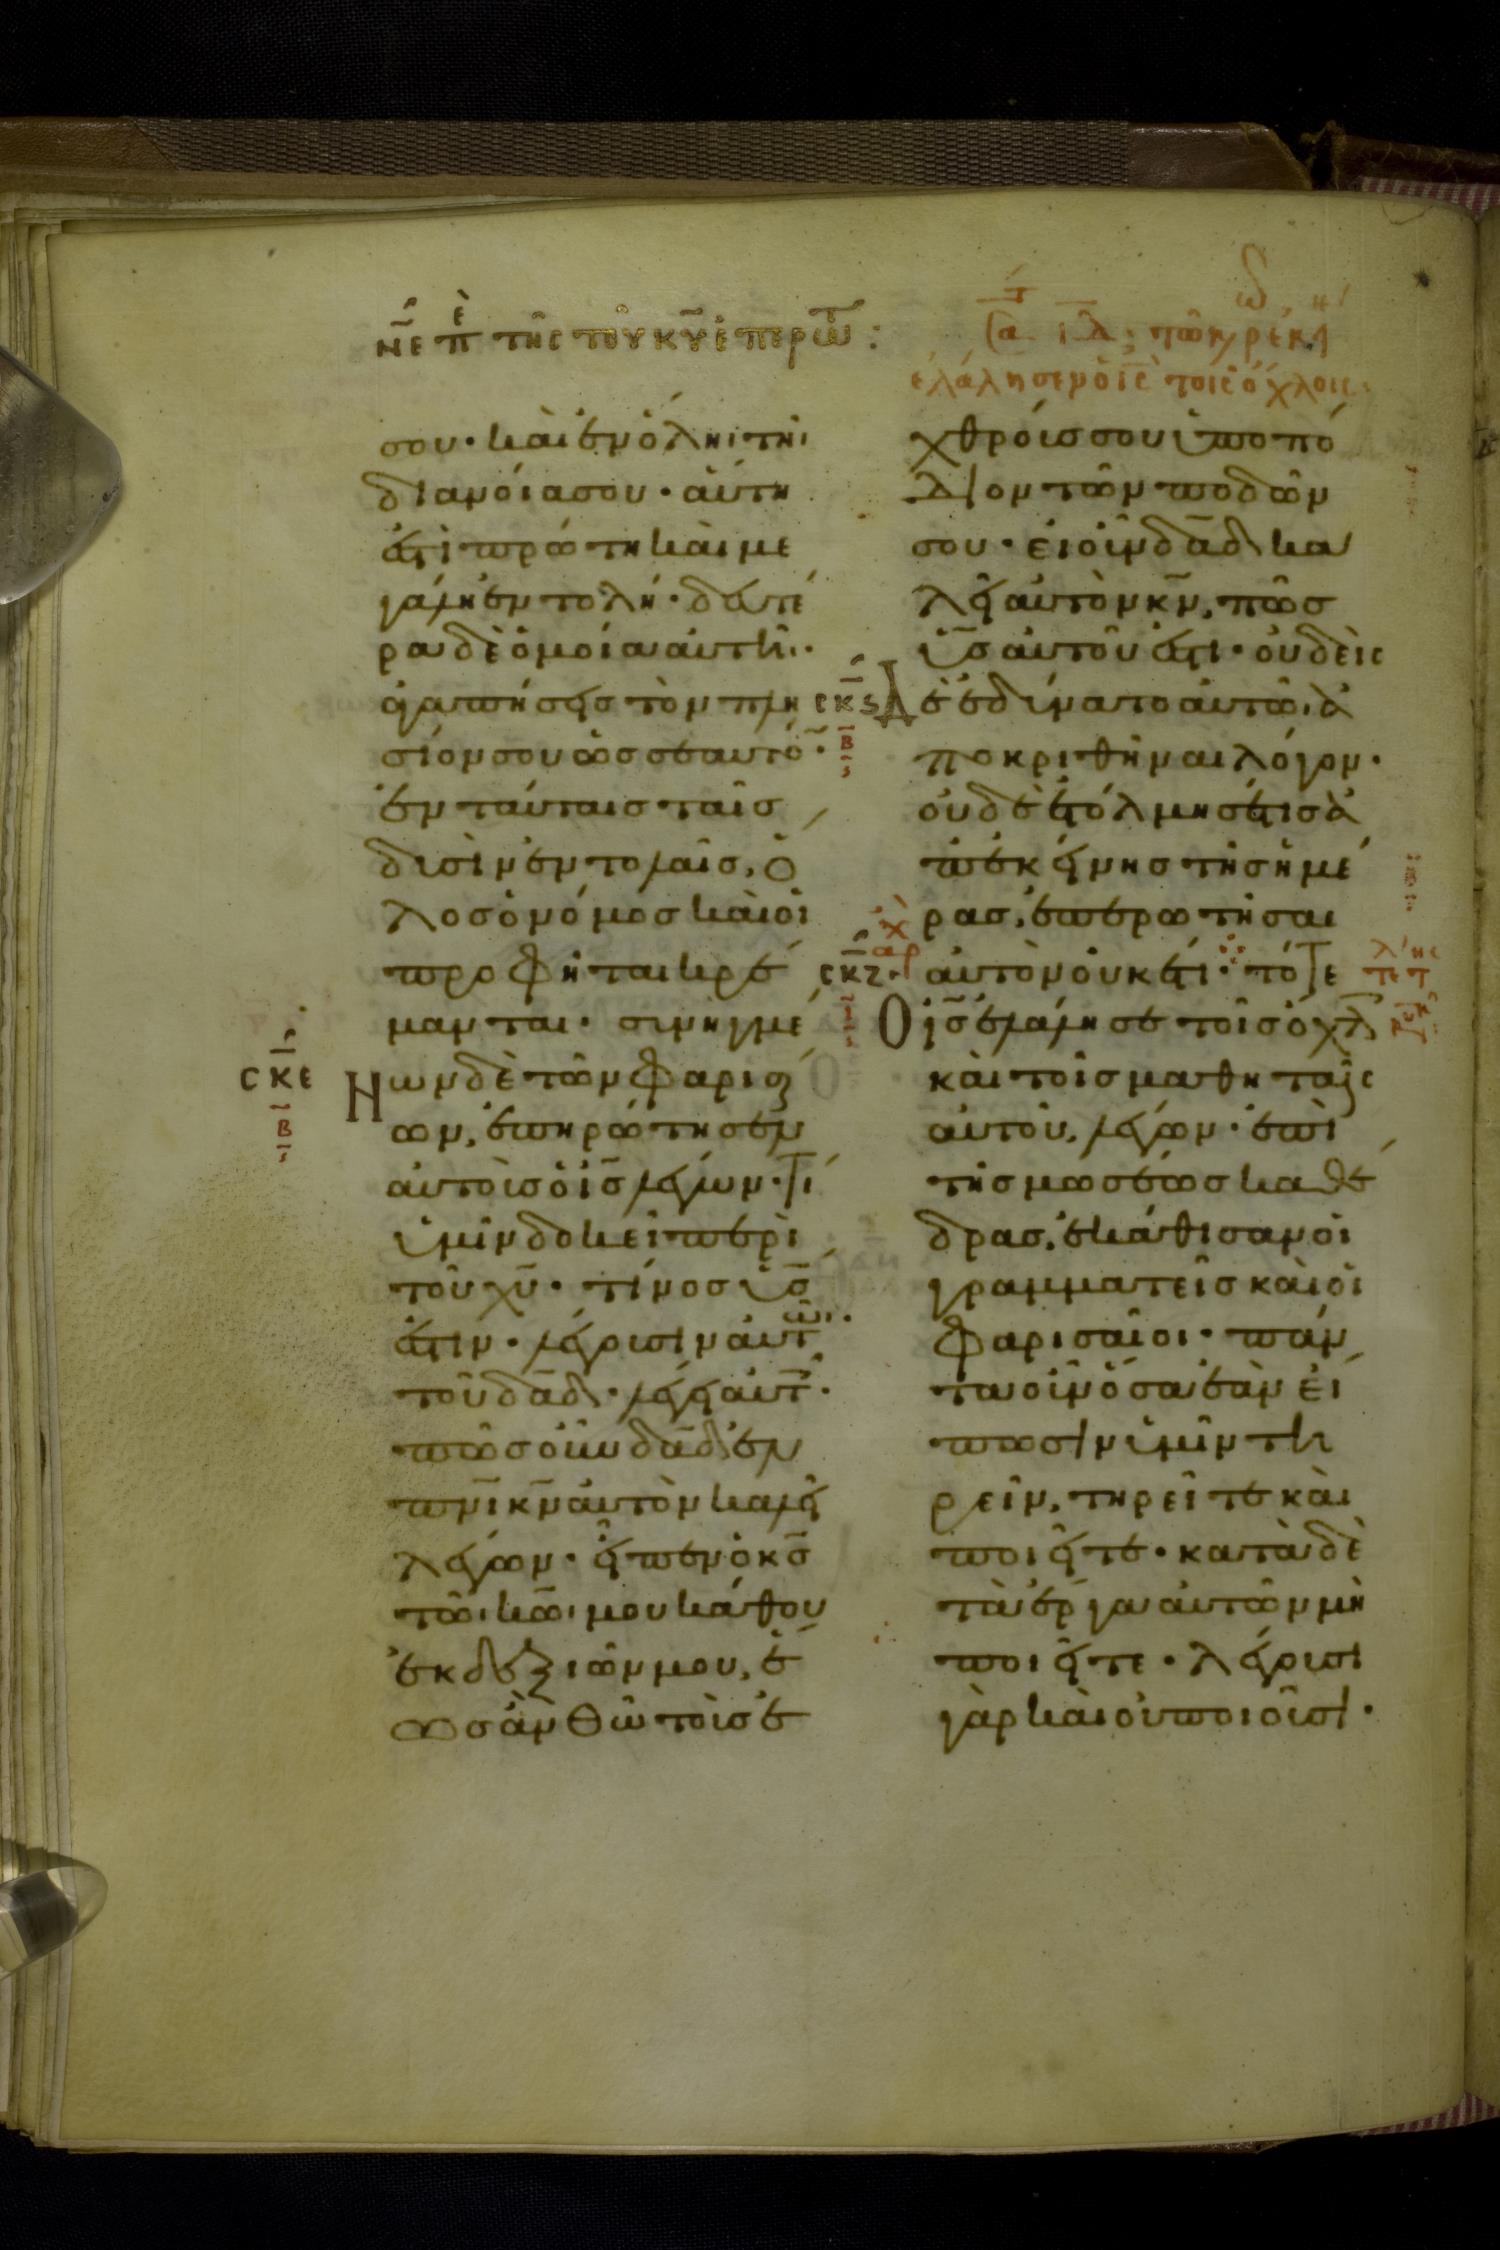 ΝΕ ΠΕ ΤΗΣ ΤΟΥ ΚΥ ἐπερωτ :
σου · καὶ ἐν ὅληι τῆι
διανοίασου · αὕτη
ἐστὶ πρώτη καὶ με
γάλη ἐντολή · δευτέ
ρα δὲ ὁμοία αὐτῆι ·
ἀγαπήσεις τὸν πλη
σίον σου ὡς σεαυτό ·
ἐν ταύταις ταῖς
δυσὶν ἐντολαῖς, ὅ
λος ὁ νόμος καὶ οἱ
προφῆται κρέ
μανται · συνηγμέ
ϹΚΕ Νωνδὲ τῶν φαρισαί
Β
ων, ἐπηρώτησεν
αὐτοὺς ὁ ις λέγων · τί
ὑμῖν δοκεῖ περὶ
τοῦ χυ · τίνος υς
ἐστιν · λέγουσιν αὐτῶι ·
τοῦ δαδ · λέγει αὐτ ·
πῶς οὖν δαδ ἐν
πνι κν αὐτὸν καλεῖ
λέγων · εἶπεν ὁ κς
τῶι κωι μου κάθου
ἐκ δεξιῶν μου, ἕ
ως ἂν θῶ τοὺς ἐ
τῶ κρῶ ἐκεί
ἐλάλησεν ὁ ις τοις ὄχλοις
χθρούς σου ὑποπό
διον τῶν ποδῶν
σου · εἰ οὖν δαδ κα
λεῖ αὐτὸν κν, πῶς
υς αὐτοῦ ἐστι · οὐδεὶς
ϹΚϚ
Β
ἐδύνατο αὐτῶι ἀ
ποκριθῆναι λόγον ·
οὐδὲ ἐτόλμησέ τις ἀ
π ἐκείνης τῆς ἡμέ
ρας, ἐπερωτῆσαι
ϹΚΖ αρχ αὐτὸν οὐκέτι · τότε
Ὁ ις ἐλάλησε τοῖς ὄχλ
καὶ τοῖς μαθηταῖς
αὐτοῦ, λέγων · ἐπὶ
τῆς μωσέως καθέ
δρας, ἐκάθισαν οἱ
γραμματεῖς καὶ οἱ
φαρισαῖοι · πάν
τα οὖν ὅσα ἐὰν εἴ
πωσιν ὑμῖν τη
ρεῖν, τηρεῖτε καὶ
ποιεῖτε · κατὰ δὲ
τὰ ἔργα αὐτῶν μὴ
ποιεῖτε · λέγουσι
γὰρ καὶ οὐ ποιοῦσι ·